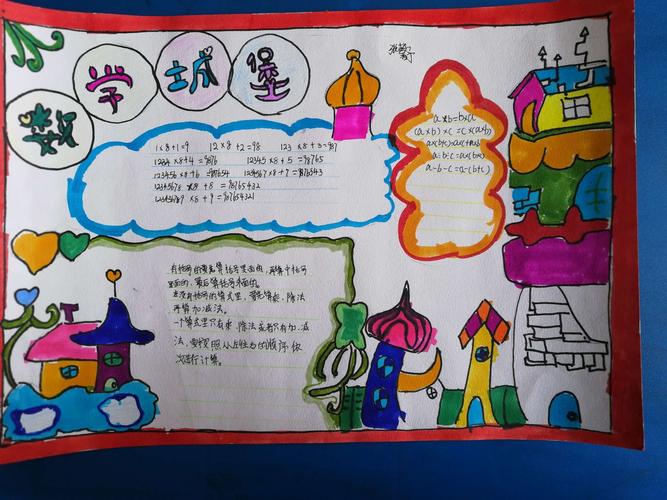 数学城堡
1×8+1=9 12×8+2=98 123×8+3=987
1234×8+4=9876 12345×8+5=98765
123456×8+6=987654 1234567×8+7=9876543
12345678×8+8=98765432
123456789×8+9=987654321
a×b=b×a
(a×b)×c=c×(a×b)
a×(b+c)=a×c+a×b
a÷b÷c=a÷(b×c)
a-b-c=a-(b+c)
有括号的要先算括号里面的，再算中括号
里面的，最后算括号外面的。
在没有括号的算式里，要先算乘、除法
再算加减法。
一个算式里只有乘、除法或者只有加、减
法，要按照从左往右的顺序依
次进行计算。